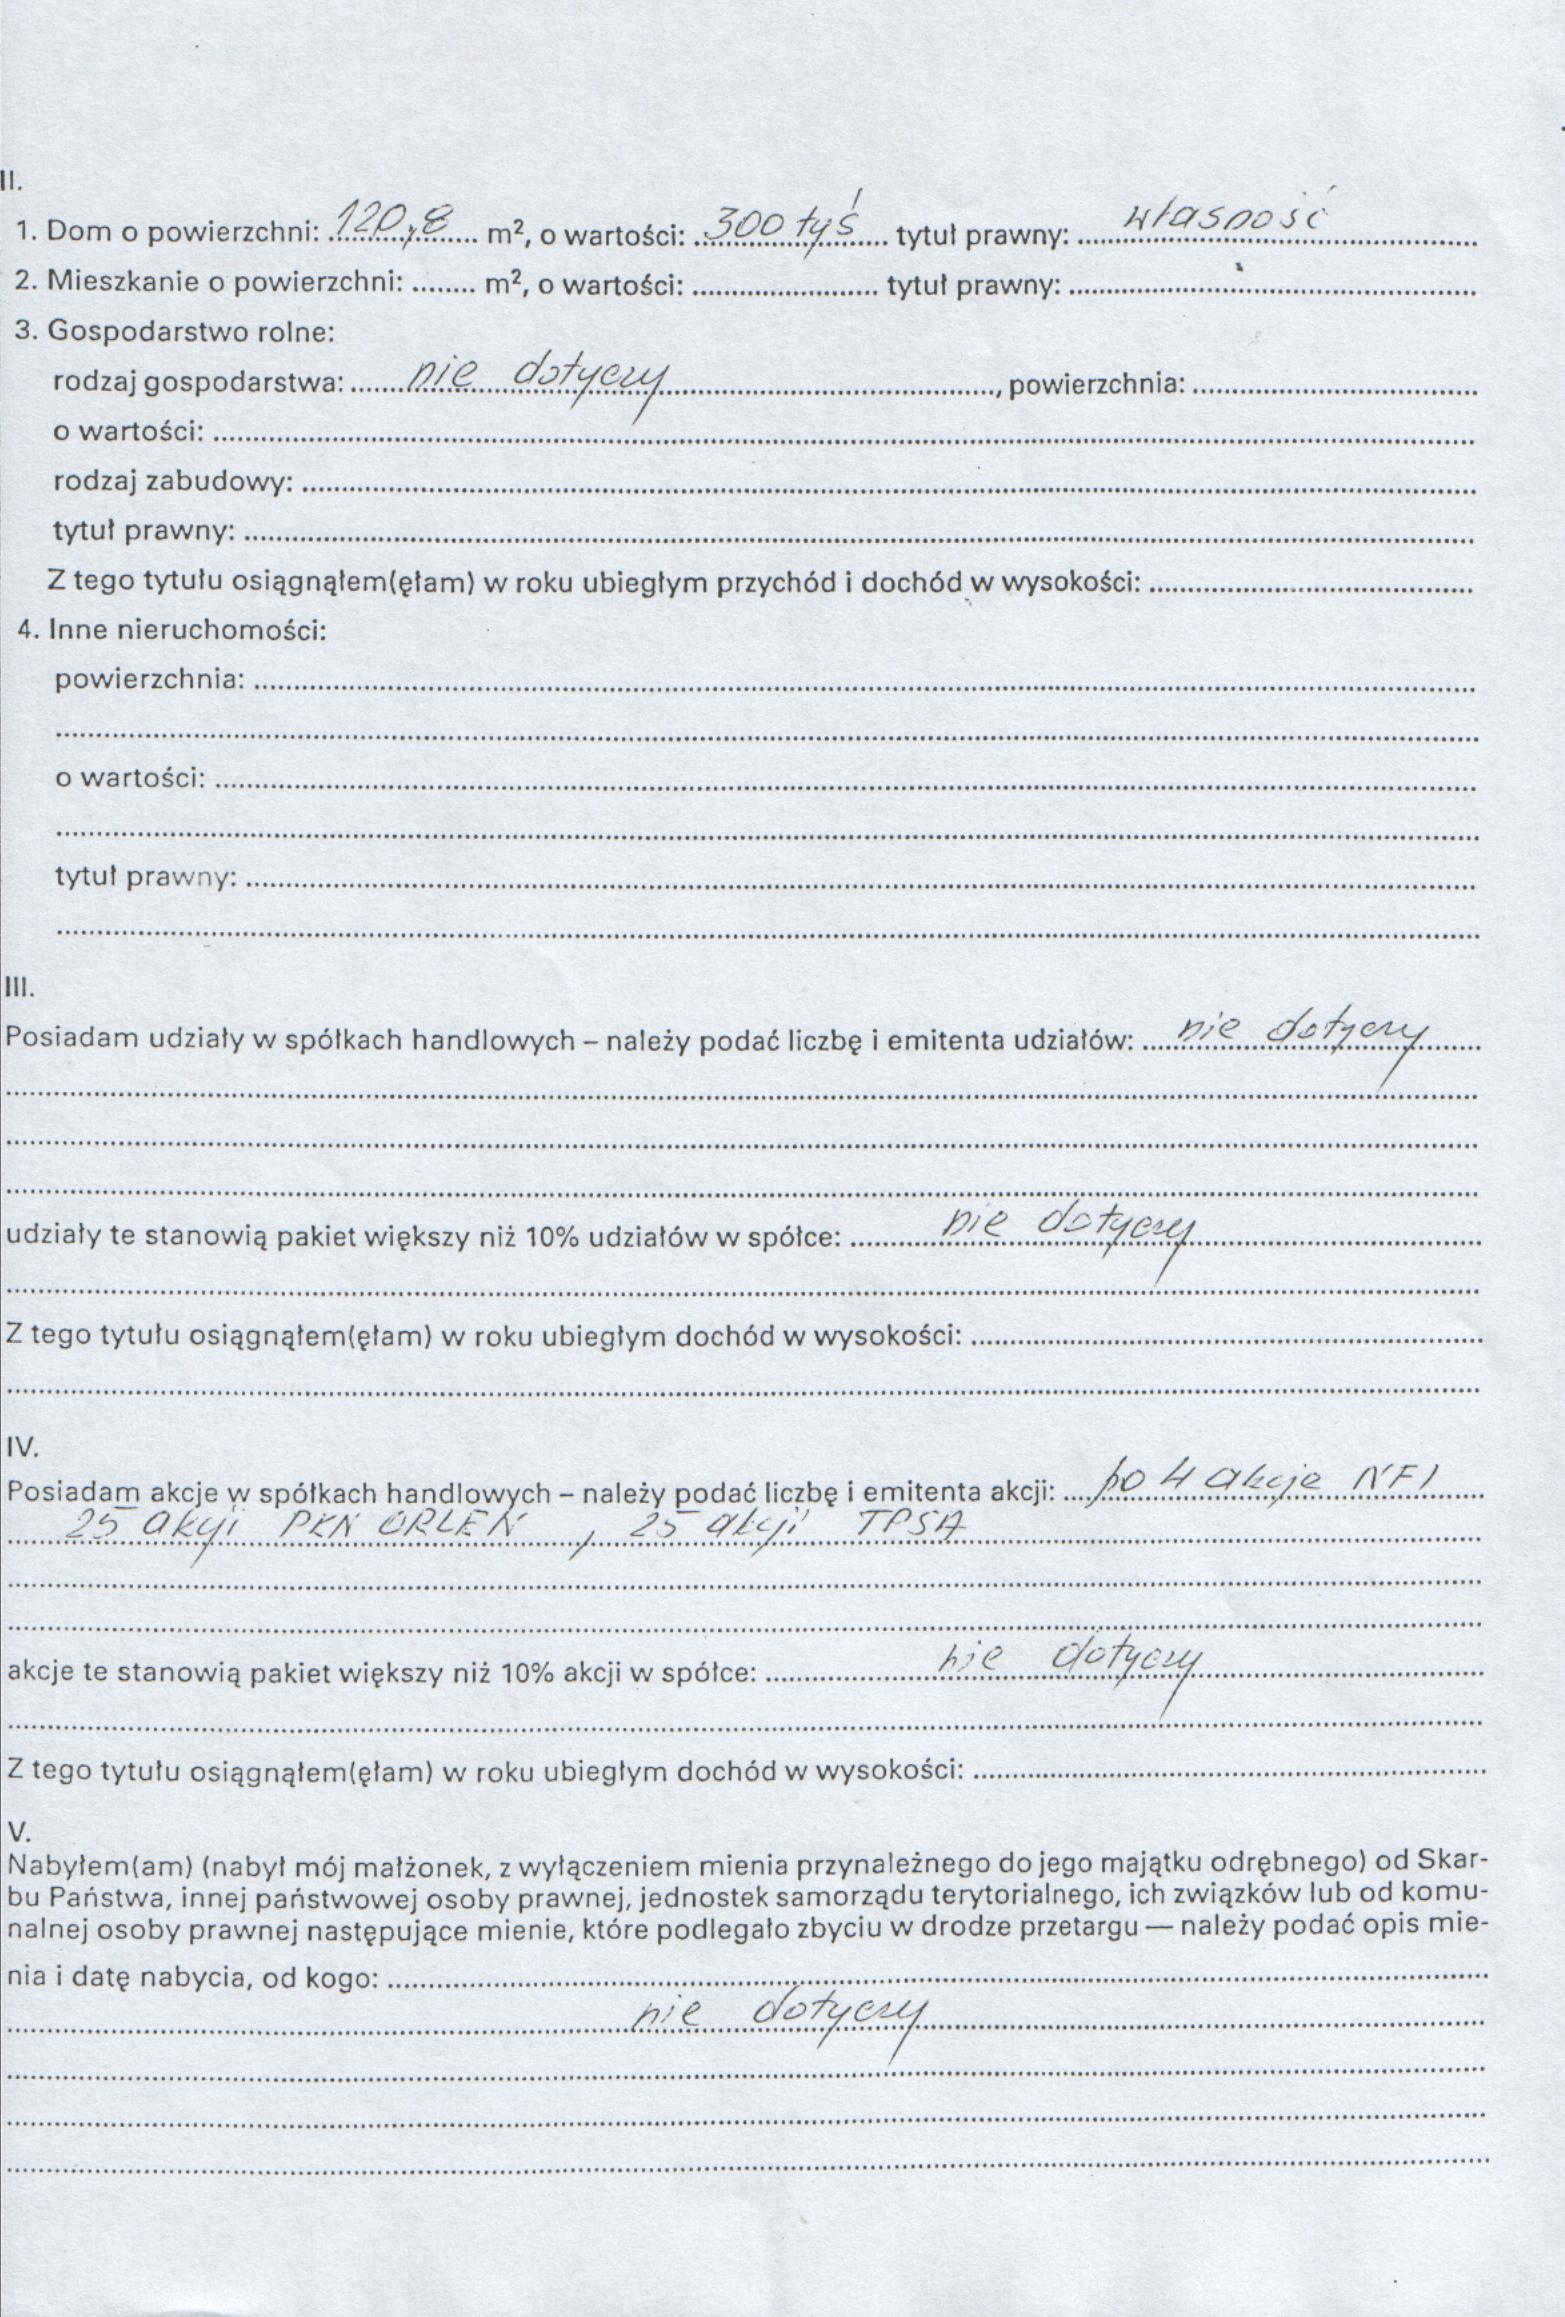 II.
1. Dom o powierzchni: 120,8 m², o wartości: 300 tyś tytuł prawny: własność
2. Mieszkanie o powierzchni: ........ m², o wartości: ........................ tytuł prawny: ........................
3. Gospodarstwo rolne:
rodzaj gospodarstwa: nie dotyczy, powierzchnia: ........................
o wartości: ........................
rodzaj zabudowy: ........................
tytuł prawny: ........................
Z tego tytułu osiągnąłem(ęłam) w roku ubiegłym przychód i dochód w wysokości: ........................
4. Inne nieruchomości:
powierzchnia: ........................
o wartości: ........................
tytuł prawny: ........................
III.
Posiadam udziały w spółkach handlowych – należy podać liczbę i emitenta udziałów: nie dotyczy
udziały te stanowią pakiet większy niż 10% udziałów w spółce: nie dotyczy
Z tego tytułu osiągnąłem(ęłam) w roku ubiegłym dochód w wysokości: ........................
IV.
Posiadam akcje w spółkach handlowych – należy podać liczbę i emitenta akcji: po 4 akcje NFI
25 akcji PKN ORLEN , 25 akcji TPSA
akcje te stanowią pakiet większy niż 10% akcji w spółce: nie dotyczy
Z tego tytułu osiągnąłem(ęłam) w roku ubiegłym dochód w wysokości: ........................
V.
Nabyłem(am) (nabył mój małżonek, z wyłączeniem mienia przynależnego do jego majątku odrębnego) od Skar-
bu Państwa, innej państwowej osoby prawnej, jednostek samorządu terytorialnego, ich związków lub od komu-
nalnej osoby prawnej następujące mienie, które podlegało zbyciu w drodze przetargu — należy podać opis mie-
nia i datę nabycia, od kogo: ........................
nie dotyczy